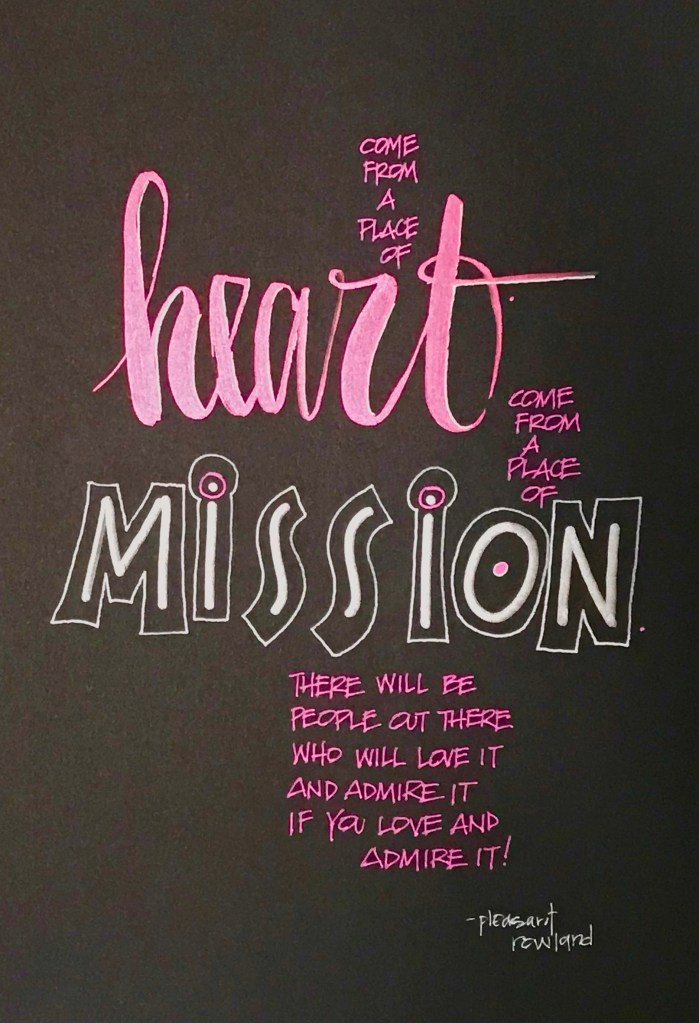 COME
FROM
A
PLACE
OF
heart
COME
FROM
A
PLACE
OF
MiSSiON.
THERE WILL BE
PEOPLE OUT THERE
WHO WILL LOVE IT
AND ADMIRE IT
IF YOU LOVE AND
ADMIRE IT!
-pleasant
rowland